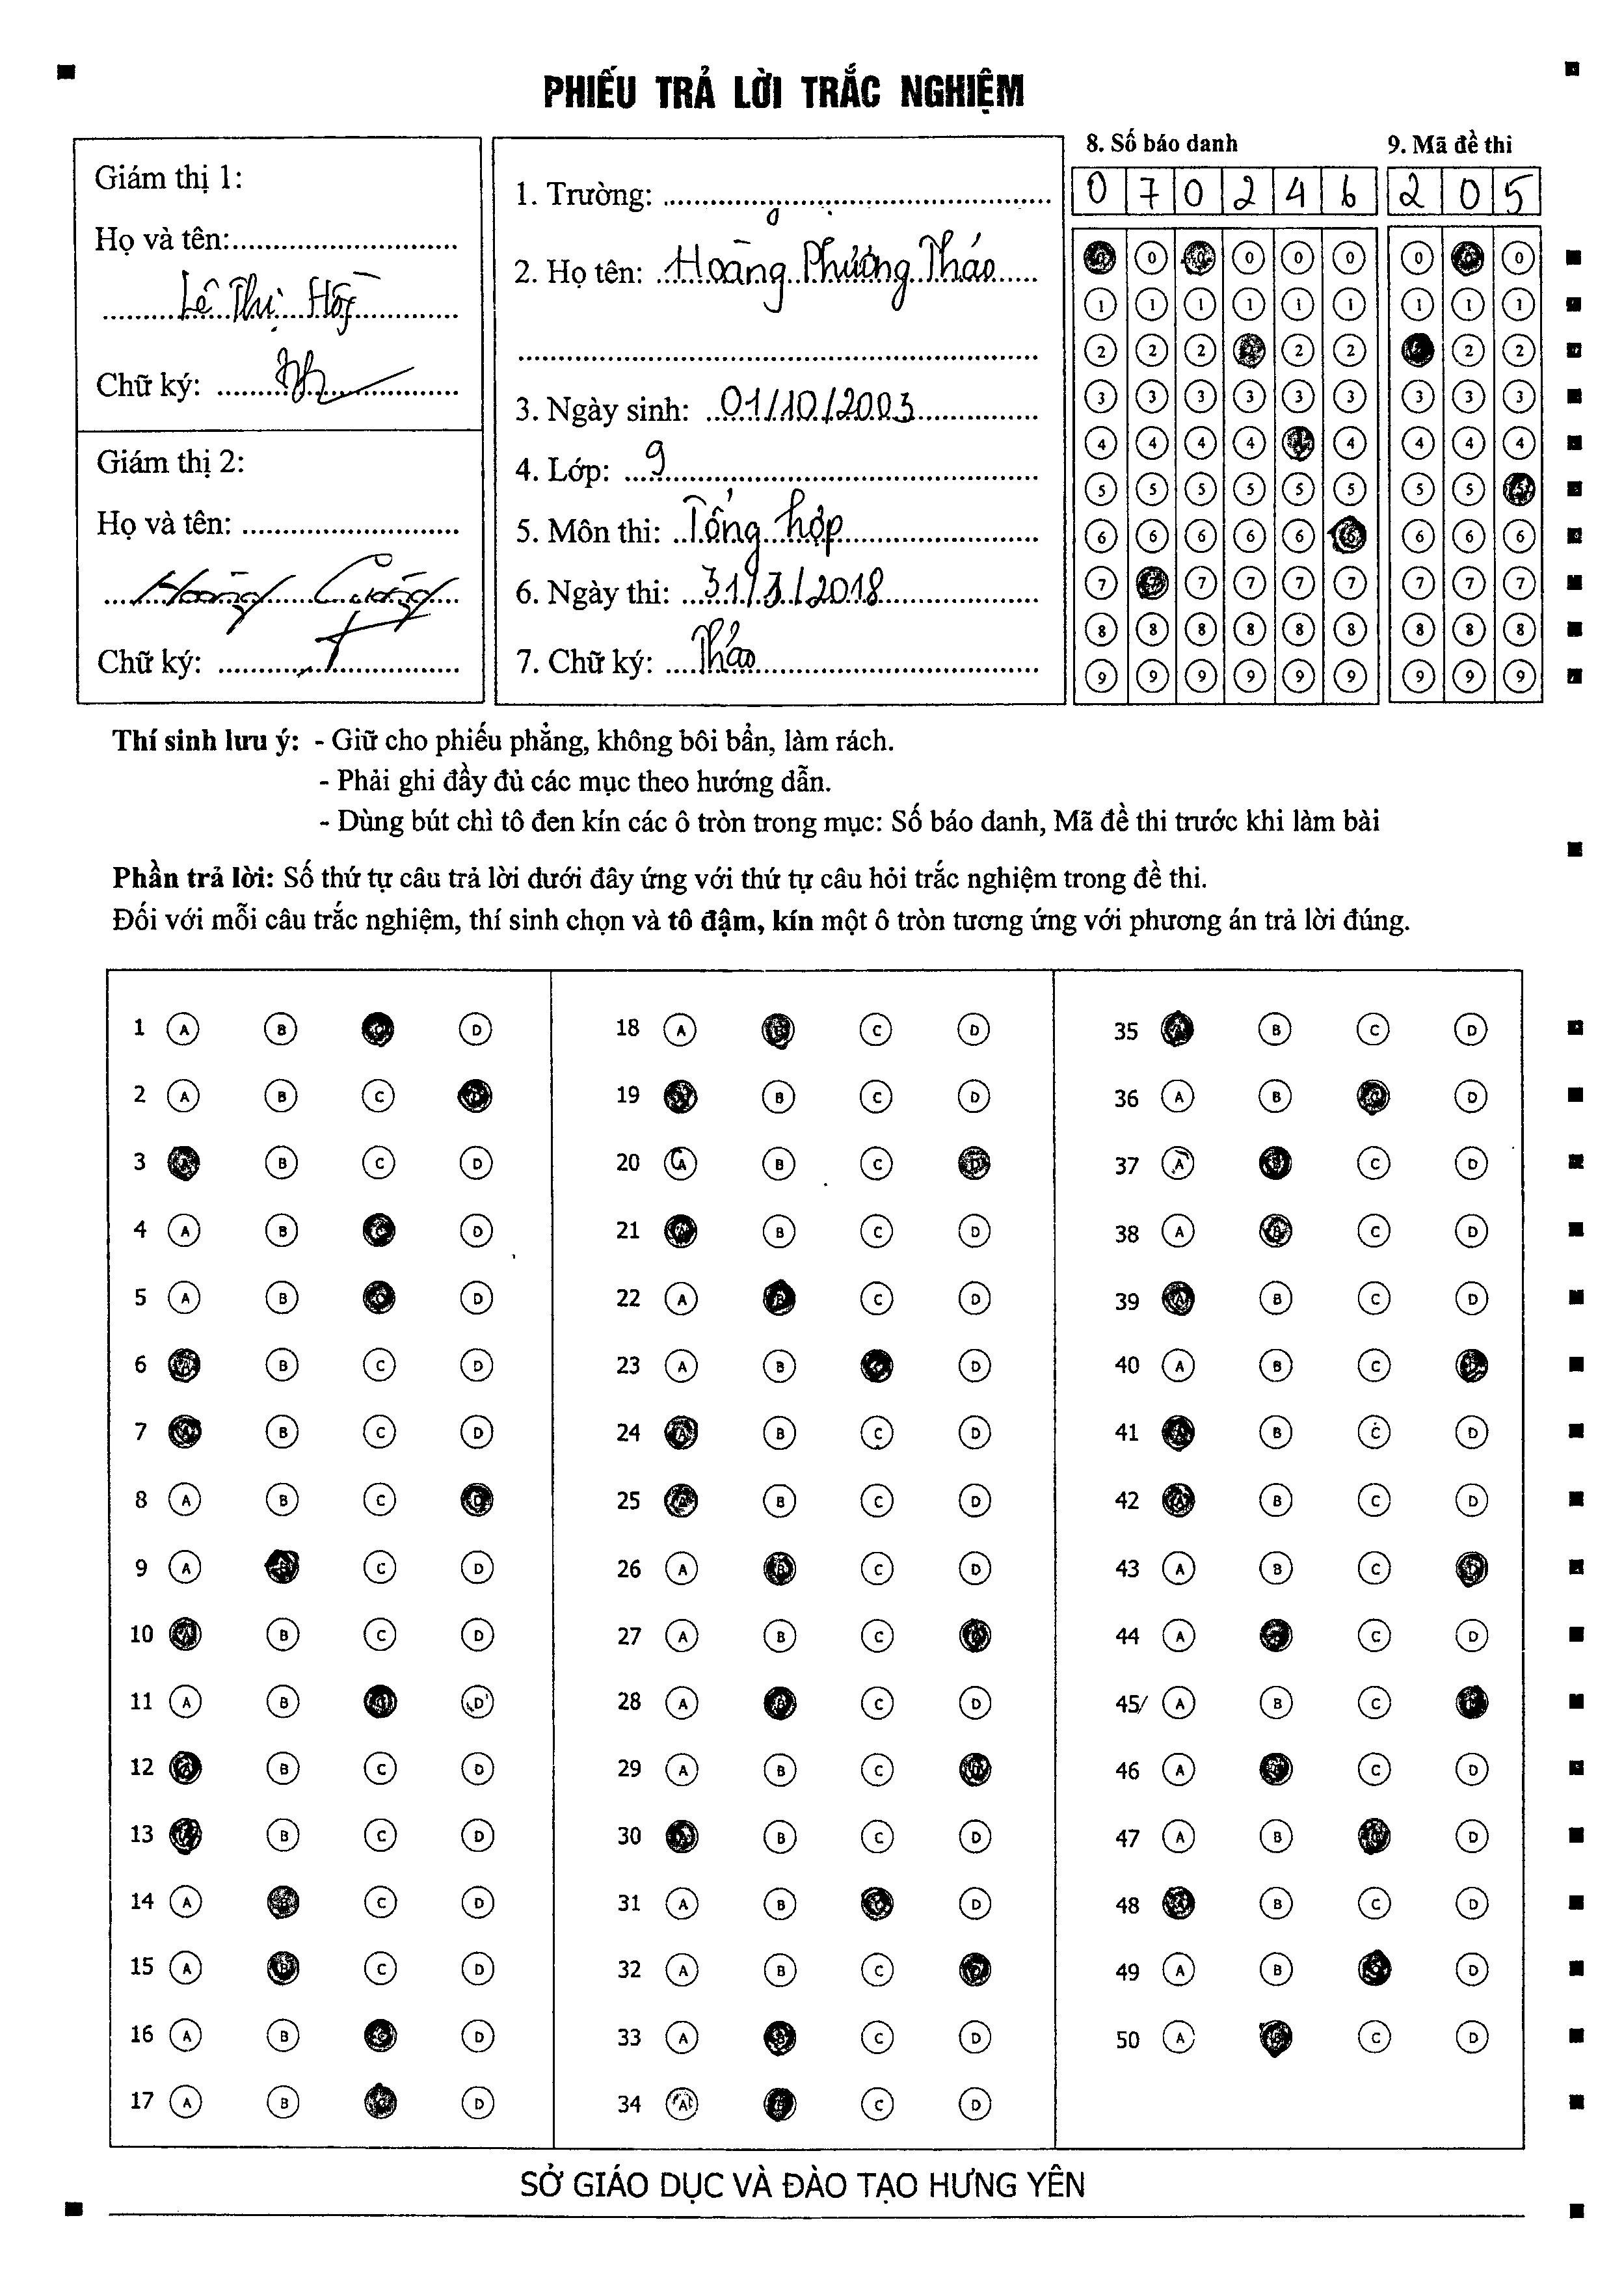 PHIẾU TRẢ LỜI TRẮC NGHIỆM
Giám thị 1:
Họ và tên:
Lê Thị
Chữ ký:
Giám thị 2:
Họ và tên:
Hoàng Cường
Chữ ký:
1. Trường:
2. Họ tên: Hoàng Phương Thảo
3. Ngày sinh: 01/10/2003
4. Lớp: 9
5. Môn thi: Tổng hợp
6. Ngày thi: 31/3/2018
7. Chữ ký: Thảo
8. Số báo danh
0 7 0 2 4 6
0 0 0 0 0 0
1 1 1 1 1 1
2 2 2 2 2 2
3 3 3 3 3 3
4 4 4 4 4 4
5 5 5 5 5 5
6 6 6 6 6 6
7 7 7 7 7 7
8 8 8 8 8 8
9 9 9 9 9 9
9. Mã đề thi
2 0 5
0 0 0
1 1 1
2 2 2
3 3 3
4 4 4
5 5 5
6 6 6
7 7 7
8 8 8
9 9 9
Thí sinh lưu ý: - Giữ cho phiếu phẳng, không bôi bẩn, làm rách.
- Phải ghi đầy đủ các mục theo hướng dẫn.
- Dùng bút chì tô đen kín các ô tròn trong mục: Số báo danh, Mã đề thi trước khi làm bài
Phần trả lời: Số thứ tự câu trả lời dưới đây ứng với thứ tự câu hỏi trắc nghiệm trong đề thi.
Đối với mỗi câu trắc nghiệm, thí sinh chọn và tô đậm, kín một ô tròn tương ứng với phương án trả lời đúng.
1 A B C D
2 A B C D
3 A B C D
4 A B C D
5 A B C D
6 A B C D
7 A B C D
8 A B C D
9 A B C D
10 A B C D
11 A B C D
12 A B C D
13 A B C D
14 A B C D
15 A B C D
16 A B C D
17 A B C D
18 A B C D
19 A B C D
20 A B C D
21 A B C D
22 A B C D
23 A B C D
24 A B C D
25 A B C D
26 A B C D
27 A B C D
28 A B C D
29 A B C D
30 A B C D
31 A B C D
32 A B C D
33 A B C D
34 A B C D
35 A B C D
36 A B C D
37 A B C D
38 A B C D
39 A B C D
40 A B C D
41 A B C D
42 A B C D
43 A B C D
44 A B C D
45 A B C D
46 A B C D
47 A B C D
48 A B C D
49 A B C D
50 A B C D
SỞ GIÁO DỤC VÀ ĐÀO TẠO HƯNG YÊN